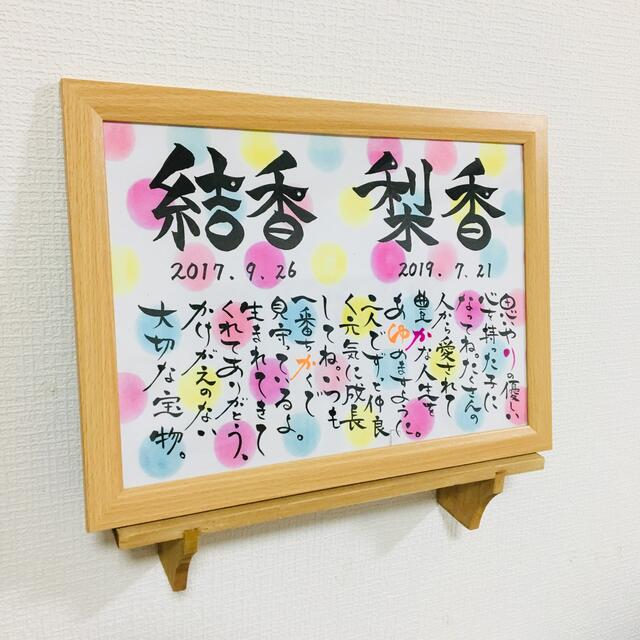 結香 梨香
2017.9.26 2019.7.21
思いやりの優しい
心を持った子に
なってね。たくさんの
人から愛されて
豊かな人生を
あゆめますように。
二人でずっと仲良
く元気に成長
してね。いつも
一番ちかくで
見守っているよ。
生まれてきて
くれてありがとう。
かけがえのない
大切な宝物。